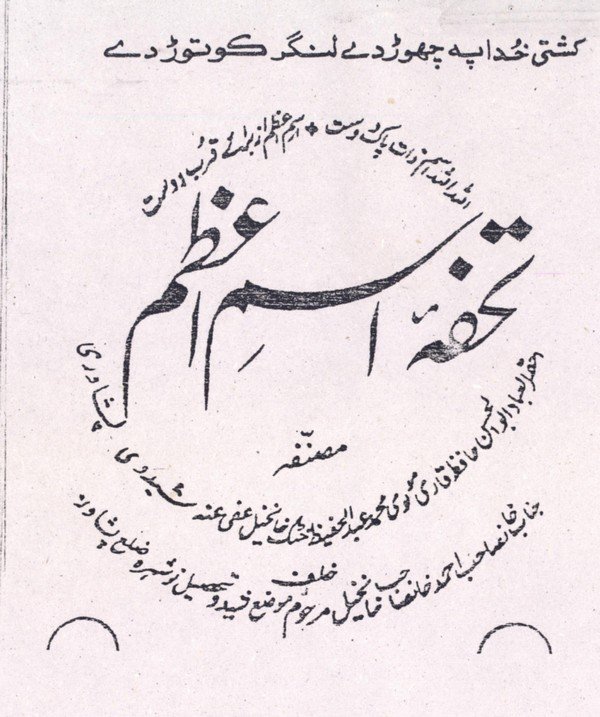 کشتی خدا پہ چھوڑ دے لنگر کو توڑ دے
اللہ اللہ اسم ذات پاک دوست ٭ اسم اعظم از برائے قرب دوست
تحفۂ اسمِ اعظم
مصنّفہ
احقر العباد ابو الحسن حافظ قاری مولوی محمد عبد الحفیظ خٹک خانخیل عفی عنہ شیدوی پشاوری
خلف
جناب خانصاحب احمد خانصاحب خانخیل مرحوم موضع شیدو تحصیل نوشہرہ ضلع پشاور